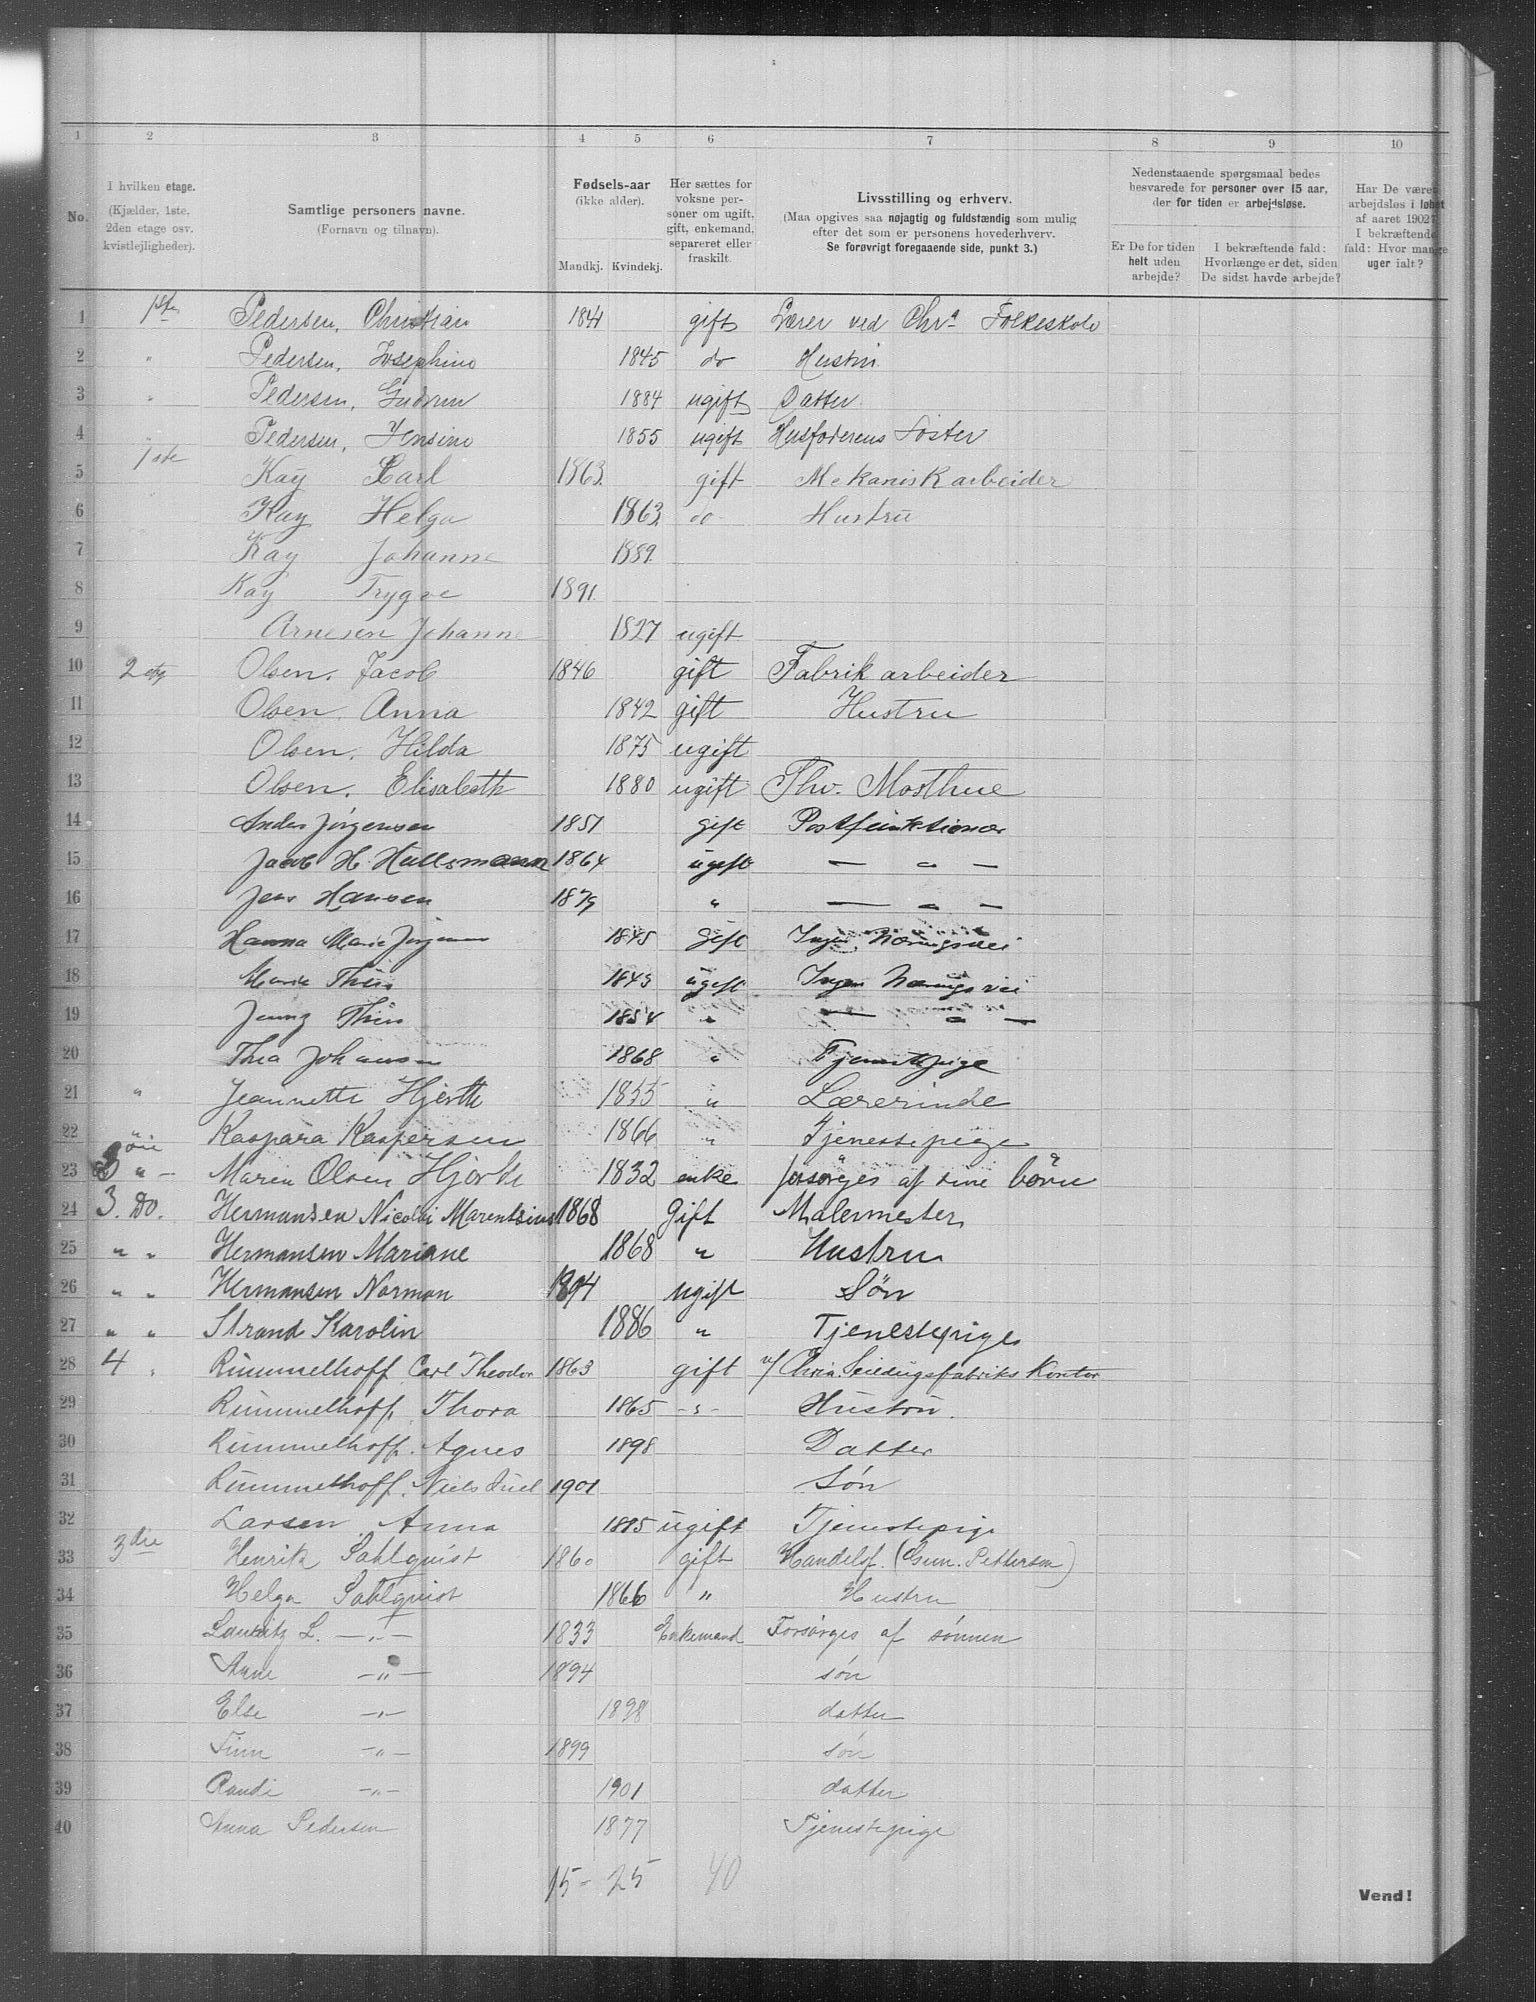 1 2 3 4 5 6 7 8 9 10
No.
I hvilken etage.
(Kjælder, 1ste, 2den etage osv. kvistlejligheder).
Samtlige personers navne.
(Fornavn og tilnavn).
Fødsels-aar
(ikke alder).
Mandkj. Kvindekj.
Her sættes for voksne personer om ugift, gift, enkemand, separeret eller fraskilt.
Livsstilling og erhverv.
(Maa opgives saa nøjagtig og fuldstændig som mulig efter det som er personens hovederhverv.
Se forøvrigt foregaaende side, punkt 3.)
Nedenstaaende spørgsmaal bedes besvarede for personer over 15 aar, der for tiden er arbejdsløse.
Er De for tiden helt uden arbejde?
I bekræftende fald: Hvorlænge er det, siden De sidst havde arbejde?
Har De været arbejdsløs i løbet af aaret 1902? I bekræftende fald: Hvor mange uger ialt?
1 1ste Pedersen, Christian 1841 gift Lærer ved Chra Folkeskole
2 " Pedersen, Josephine 1845 do Hustru
3 " Pedersen, Gudrun 1884 ugift Datter
4 " Pedersen, Jensine 1855 ugift Husfaderens Søster
5 1ste Kay Carl 1863 gift Mekanisk arbeider
6 Kay Helga 1863 do Hustru
7 Kay Johanne 1889
8 Kay Trygve 1891
9 Arnesen Johanne 1827 ugift
10 2 etg Olsen, Jacob 1846 gift Fabrik arbeider
11 Olsen, Anna 1842 gift Hustru
12 Olsen, Hilda 1875 ugift
13 Olsen, Elisabeth 1880 ugift Thv. Mosthue
14 Anders Jörgensen 1851 gift Postfunktionær
15 Jacob H. Hullsmann 1864 ugift — " —
16 Jens Hansen 1879 " — " —
17 Hanna Marie Jörgensen 1845 gift Ingen Næringsvei
18 Marie Thiis 1843 ugift Ingen Næringsvei
19 Jenny Thiis 1854 " — " —
20 Thea Johansen 1868 " Tjenestepige
21 " Jeannette Hjorth 1855 " Lærerinde
22 " Kaspara Kaspersen 1866 " Tjenestepige
23 " — Maren Olsen Hjorth 1832 enke forsørges af sine børn
24 3. Do. Hermansen Nicolai Marentzius 1868 Gift Malermester
25 " " Hermansen Mariane 1868 " Hustru
26 " " Hermansen Norman 1894 ugift Søn
27 " " Strand Karolin 1886 " Tjenestepige
28 4 " Rummelhoff Carl Theodor 1863 gift v/ Chria. Seildugsfabriks Kontor
29 Rummelhoff, Thora 1865 -"- Hustru.
30 Rummelhoff. Agnes 1898 Datter
31 Rummelhoff, Niels Juel 1901 Søn
32 Larsen Anna 1885 ugift Tjenestepige
33 3die Henrik Sahlquist 1860 gift Handelsf. (Gun. Pettersen)
34 Helga Sahlquist 1866 " Hustru
35 Lauritz L. —"— 1833 Enkemand Forsørges af sønnen
36 Arne —"— 1894 søn
37 Else —"— 1898 datter
38 Finn —"— 1899 søn
39 Randi —"— 1901 datter
40 Anna Pedersen 1877 Tjenestepige
15 - 25 40
Vend!